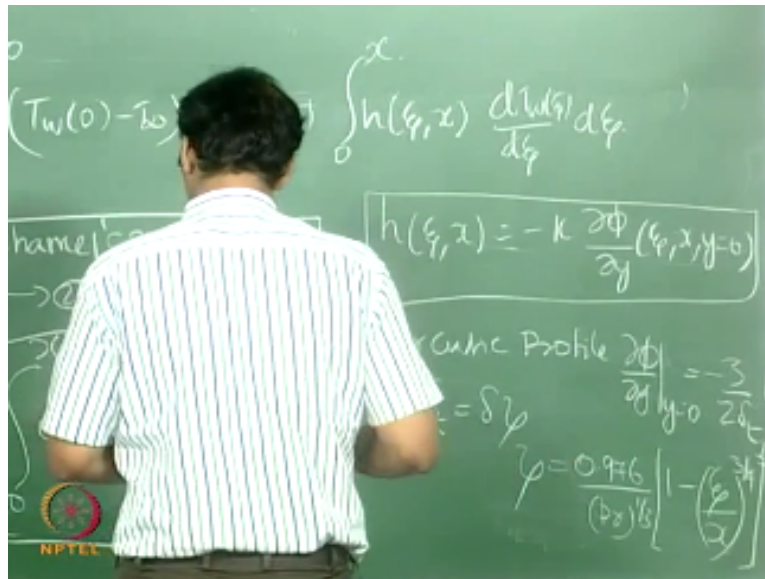 (Tw(0)-T∞) ∫₀ˣ h(ξ,x) dTw(ξ)/dξ dξ
hamel's
h(ξ,x) = -k ∂Φ/∂y (ξ,x,y=0)
→ ②
cubic Profile ∂Φ/∂y|y=0 = -3/2δt
t = δψ
ψ = 0.976/(Pr)^1/3 [1-(ξ/x)^3/4]
NPTEL